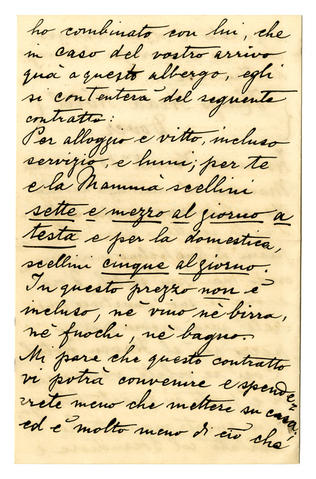 ho combinato con lui, che
in caso del vostro arrivo
quà a questo albergo, egli
si contenterà del seguente
contratto:
Per alloggio e vitto, incluso
servizio, e lumi; per te
e la Mammà scellini
sette e mezzo al giorno a
testa e per la domestica,
scellini cinque al giorno.
In questo prezzo non è
incluso, nè vino nè birra,
nè fuochi, nè bagno.
Mi pare che questo contratto
vi potrà convenire e spende-
rete meno che mettere su casa;
ed è molto meno di ciò che